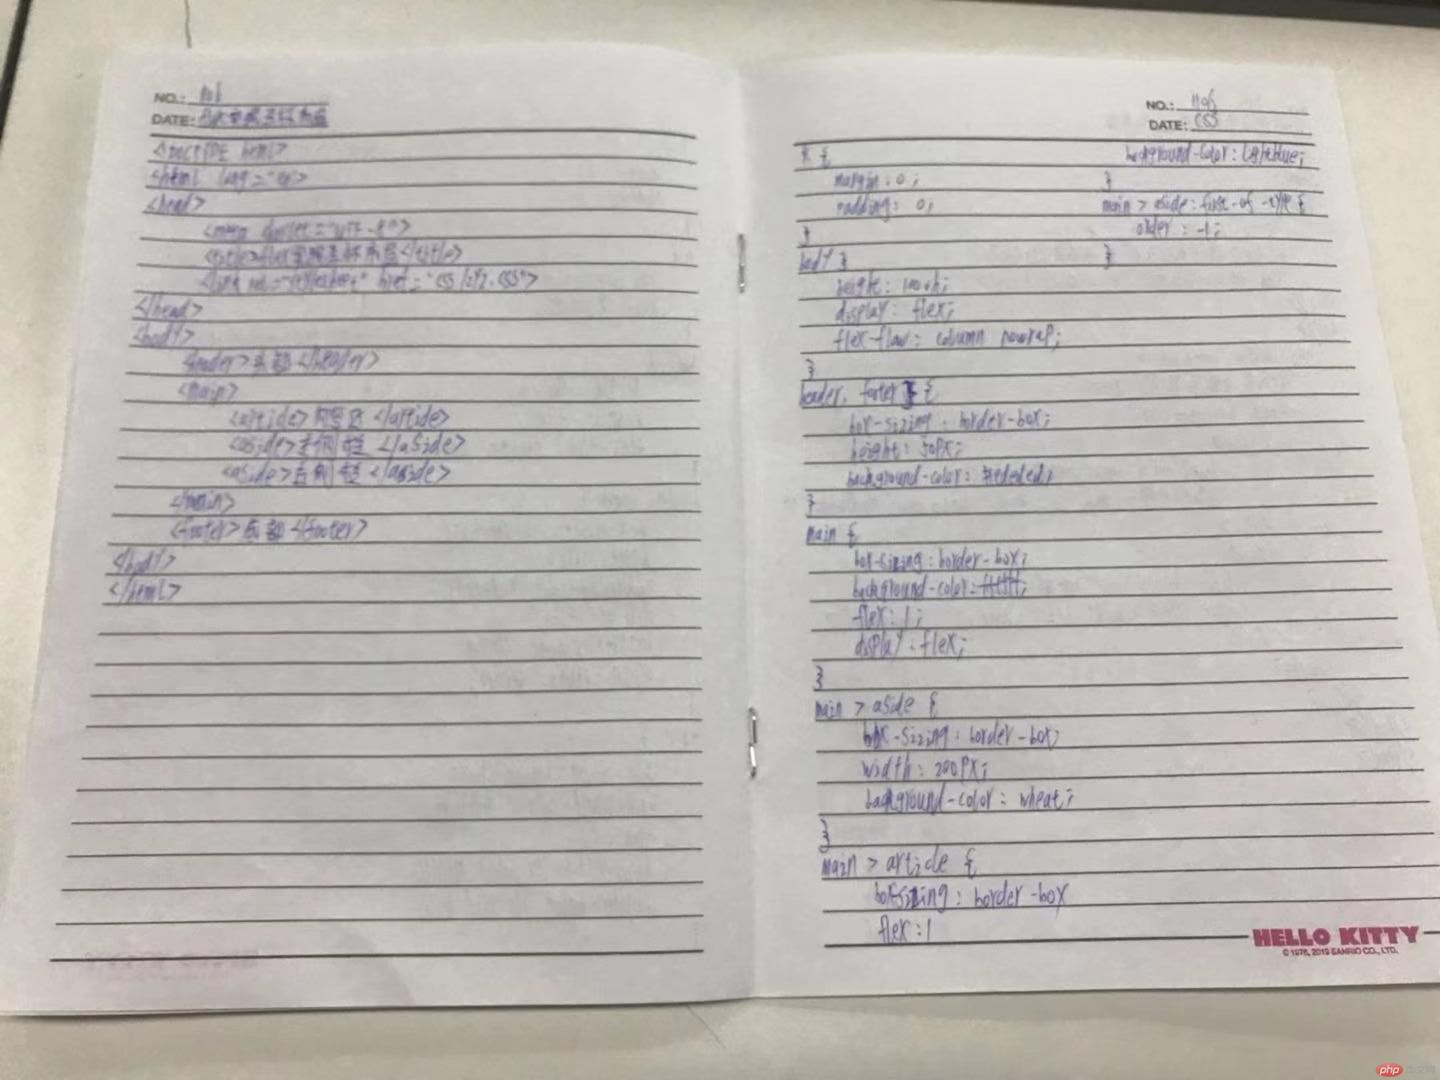 NO.: 1106
DATE:
<!DOCTYPE html>
<html lang="en">
<head>
<meta charset="UTF-8">
<title>flex实现圣杯布局</title>
<link rel="stylesheet" href="css/
.css">
</head>
<body>
<header>头部</header>
<main>
<article>内容区</article>
<aside>左侧栏</aside>
<aside>右侧栏</aside>
</main>
<footer>底部</footer>
</body>
</html>
NO.: 1106
DATE: CSS
* {
margin: 0;
padding: 0;
}
body {
height: 100vh;
display: flex;
flex-flow: column nowrap;
}
header, footer {
box-sizing: border-box;
height: 50px;
background-color: #ededed;
}
main {
box-sizing: border-box;
background-color:
flex: 1;
display: flex;
}
main > aside {
box-sizing: border-box;
width: 200px;
background-color: wheat;
}
main > article {
box-sizing: border-box
flex: 1
background-color: lightblue;
}
main > aside: first-of-type {
order: -1;
}
HELLO KITTY
© 1976, 2019 SANRIO CO., LTD.
php